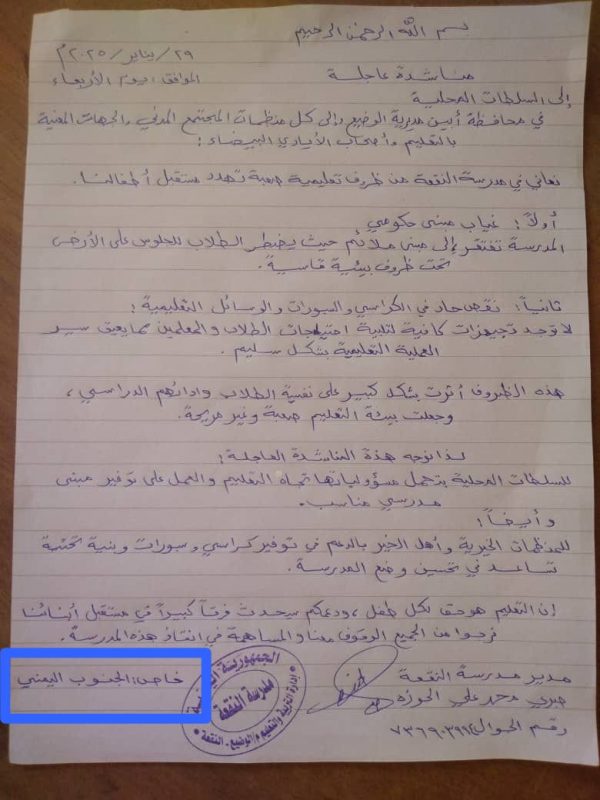 بسم الله الرحمن الرحيم
٢٩/يناير/٢٠٢٥م
مناشدة عاجلة
الموافق: يوم الأربعاء
إلى السلطات المحلية
في محافظة أبين مديرية الوضيع وإلى كل منظمات المجتمع المدني والجهات المعنية
بالتعليم وأصحاب الأيادي البيضاء:
نعاني في مدرسة النقعة من ظروف تعليمية صعبة تهدد مستقبل أطفالنا.
أولاً: غياب مبنى حكومي
المدرسة تفتقر إلى مبنى ملائم حيث يضطر الطلاب للجلوس على الأرض
تحت ظروف بيئية قاسية.
ثانياً: نقص حاد في الكراسي والسبورات والوسائل التعليمية:
لا توجد تجهيزات كافية لتلبية احتياجات الطلاب والمعلمين مما يعيق سير
العملية التعليمية بشكل سليم.
هذه الظروف أثرت بشكل كبير على نفسية الطلاب وادائهم الدراسي،
وجعلت بيئة التعليم صعبة وغير مريحة.
لذا نوجه هذة المناشدة العاجلة:
للسلطات المحلية بتحمل مسؤولياتها تجاه التعليم والعمل على توفير مبنى
مدرسي مناسب.
وأيضاً:
للمنظمات الخيرية وأهل الخير بالدعم في توفير كراسي وسبورات وبنية تحتية
تساعد في تحسين وضع المدرسة.
إن التعليم هو حق لكل طفل، ودعمكم سيحدث فرقاً كبيراً في مستقبل أبنائنا
نرجوا من الجميع الوقوف معنا والمساهمة في انقاذ هذه المدرسة.
مدير مدرسة النقعة
خاص: الجنوب اليمني
صبري محمد علي الحوزه
رقم الجوال ٧٣٦٩٠٣٩٩٤
الجمهورية اليمنية
مدرسة النقعة
إدارة التربية والتعليم م/الوضيع - النقعة